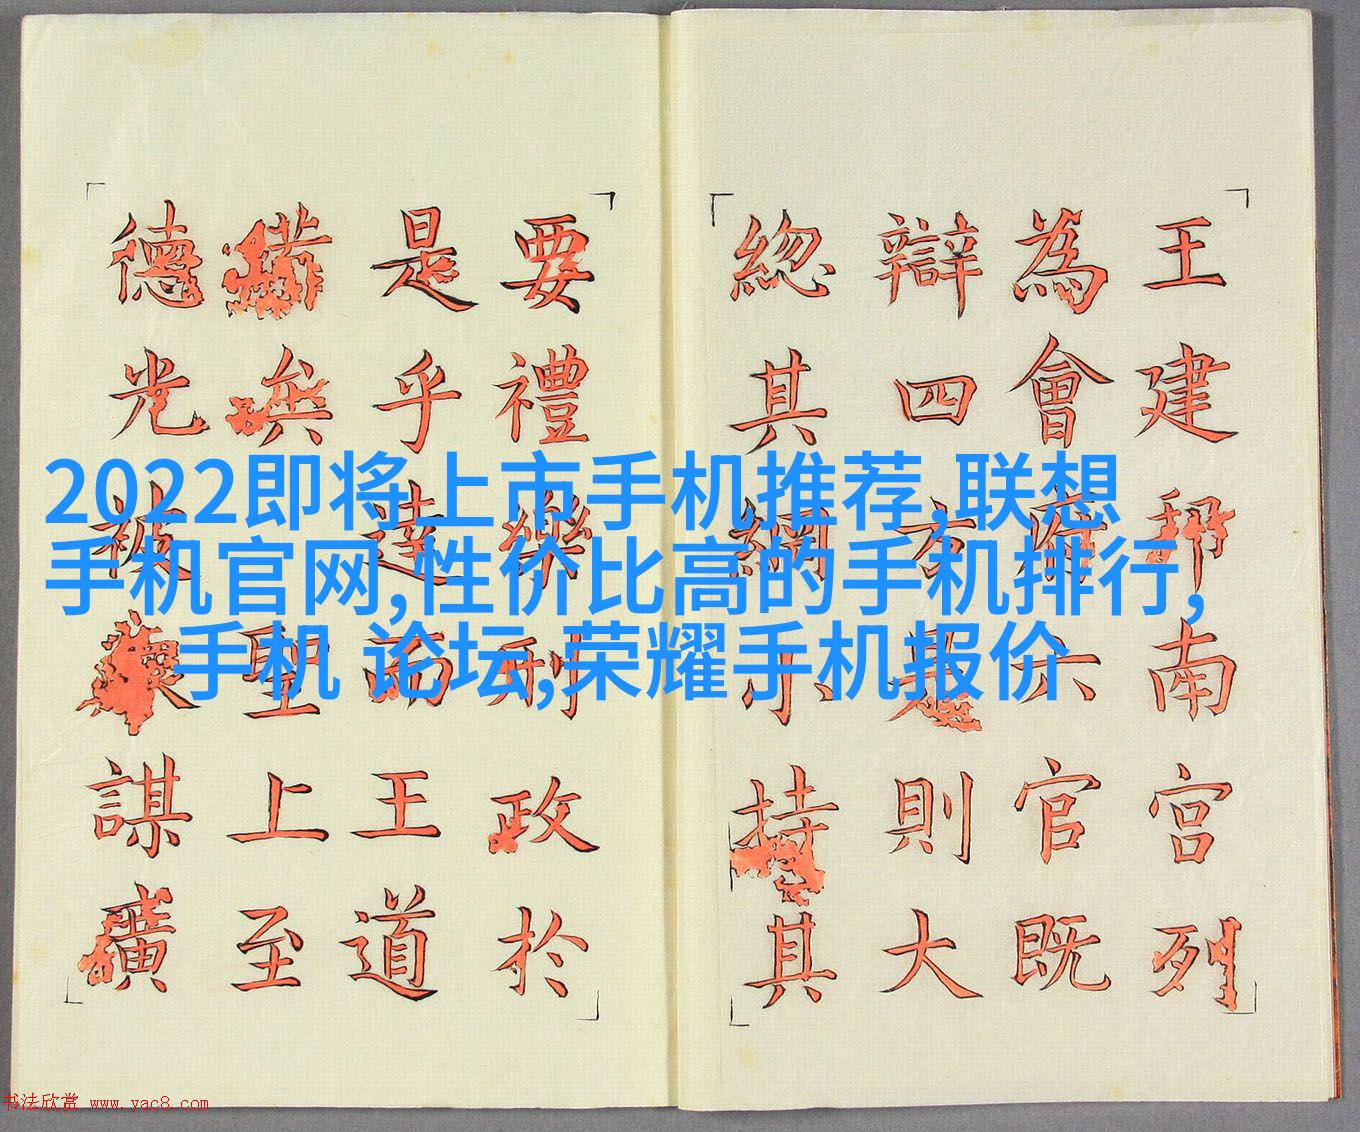 王建邦南宮列
為會府六官既
辯四方是則大
總其綱小持其
要禮樂刑政於
是乎達而王道
備矣聖上至
德光被謀廣
2022即将上市手机推荐,联想
手机官网,性价比高的手机排行,
手机 论坛,荣耀手机报价
书法欣赏 www.yac8.com